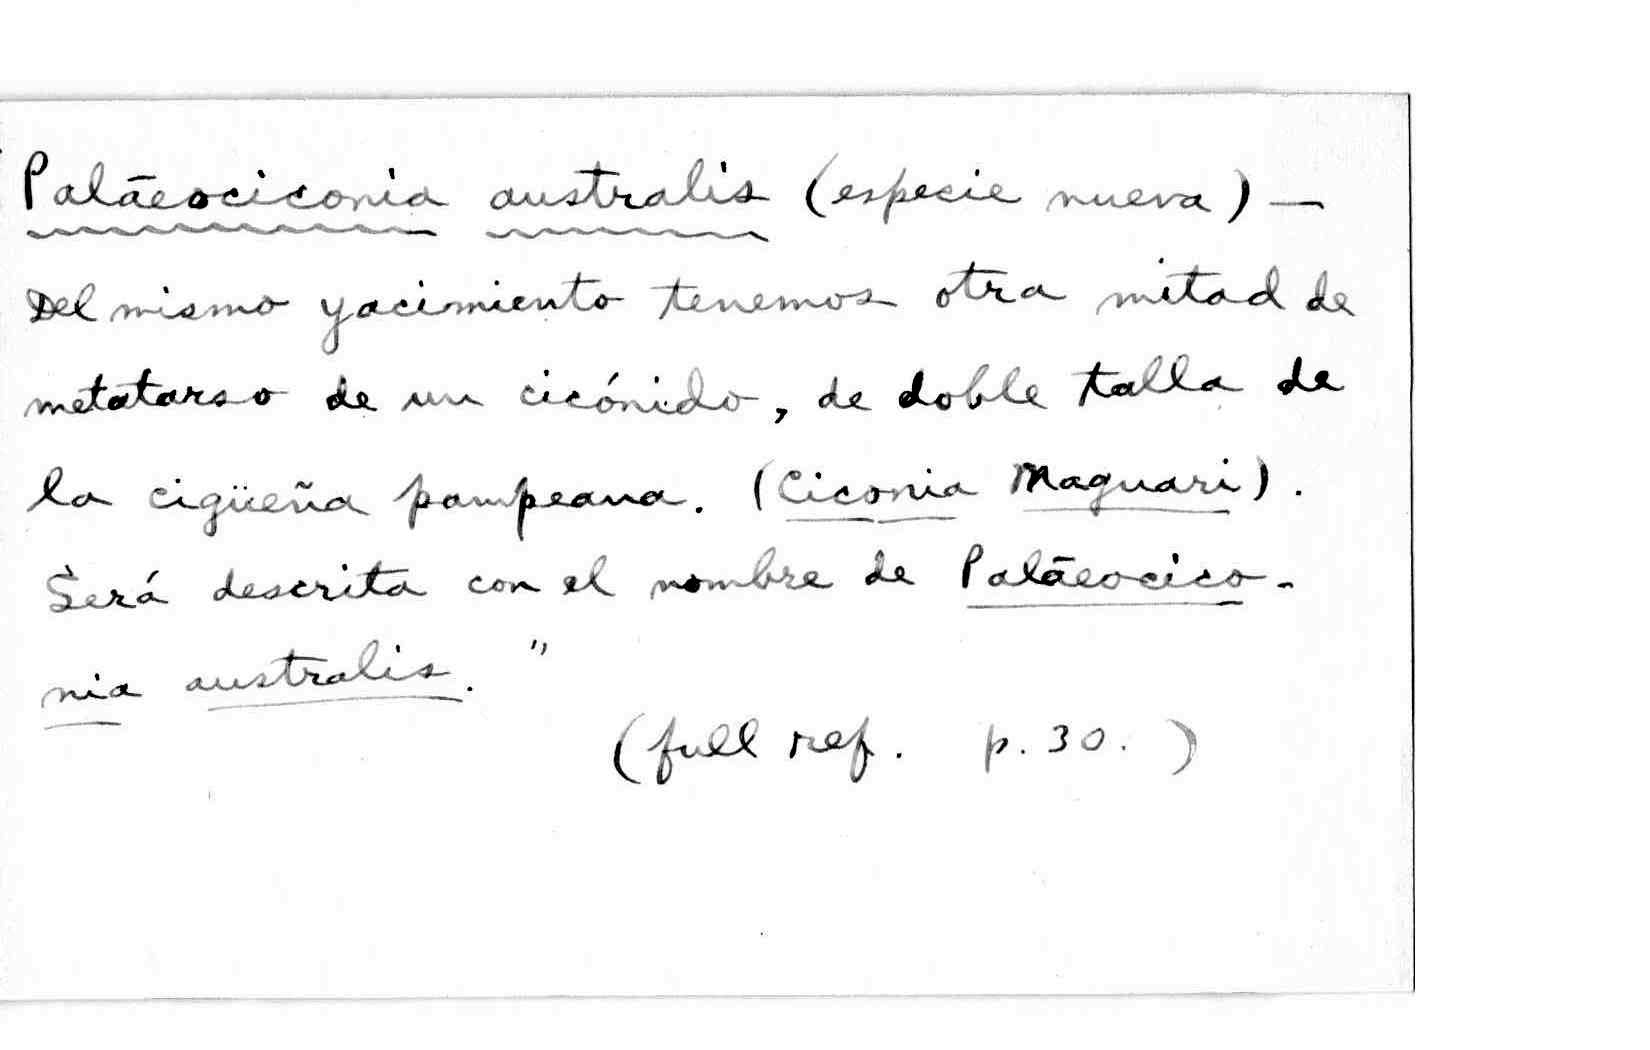 Palāeociconia australis (especie nueva) —
Del mismo yacimiento tenemos otra mitad de
metatarso de un cicónido, de doble talla de
la cigüeña pampeana. (Ciconia Maguari).
Será descrita con el nombre de Palāeocico-
nia australis."
(full ref. p. 30.)